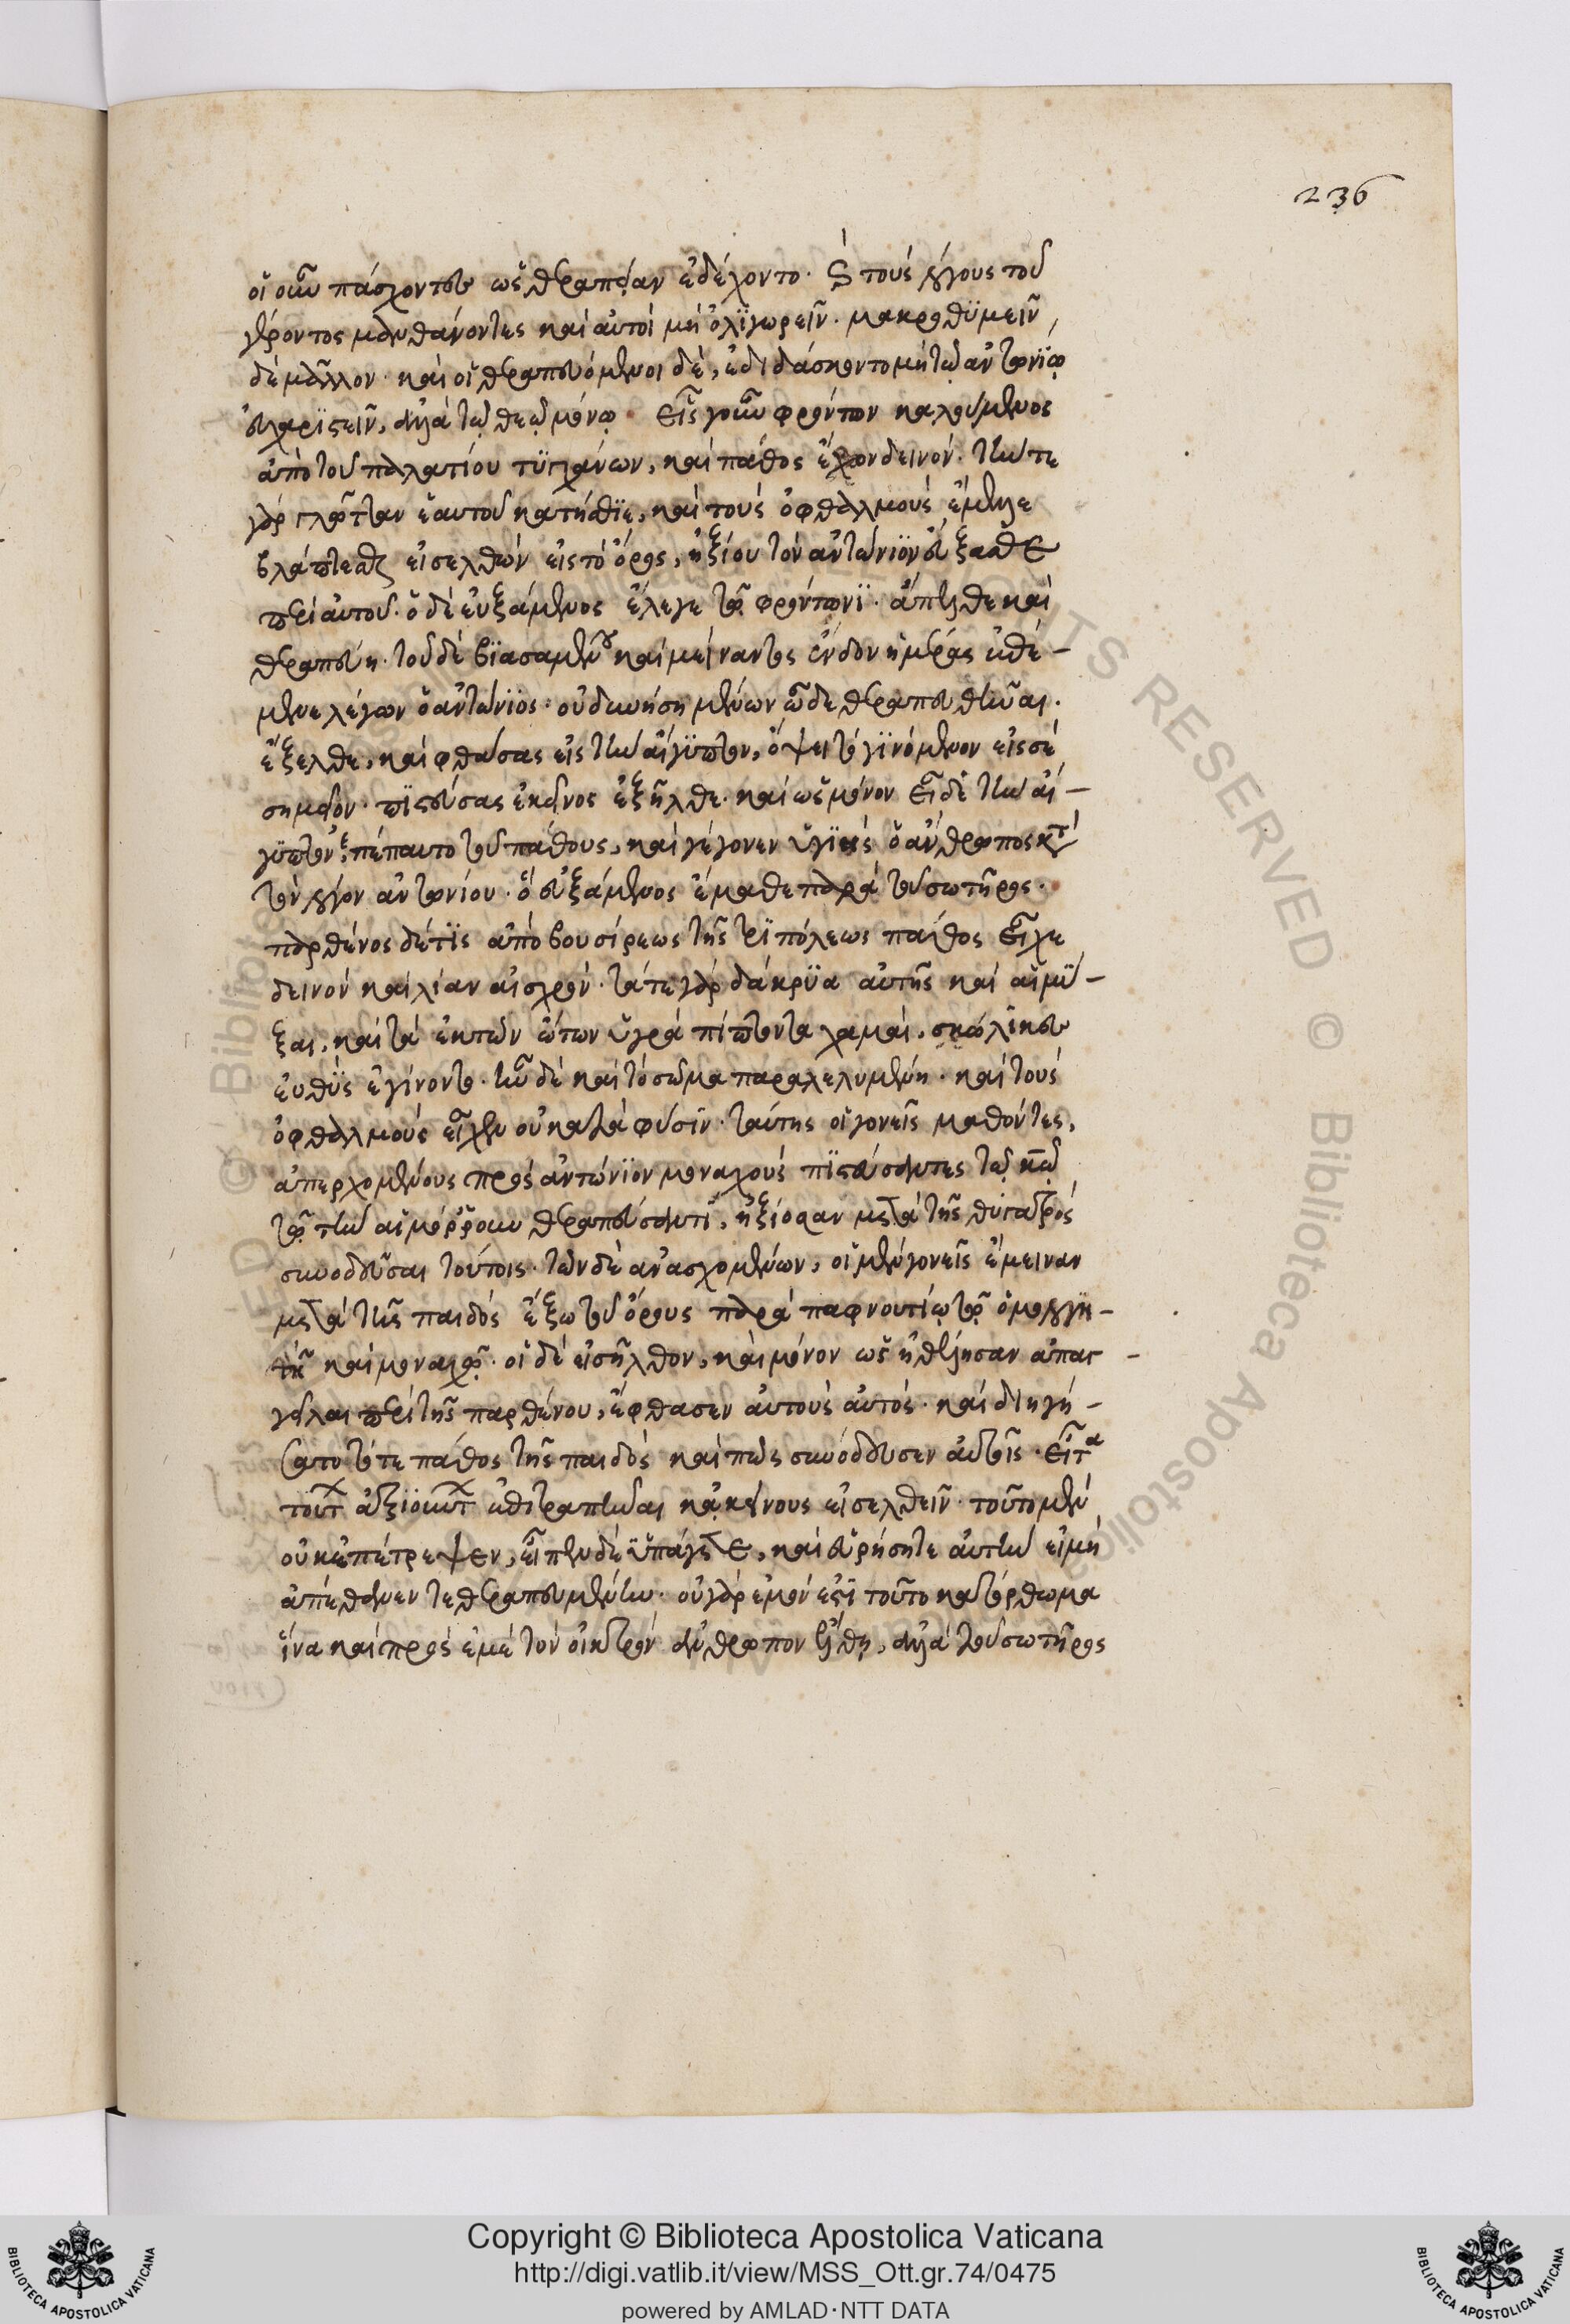 236
οἱ οὖν πάσχοντες ὡς θεραπείαν ἐδέχοντο· τοὺς λόγους τοῦ
γέροντος μανθάνοντες καὶ αὐτοὶ μὴ ὀλϊγωρεῖν· μακροθϋμεῖν
δὲ μᾶλλον· καὶ οἱ θεραπευόμενοι δὲ, ἐδιδάσκοντο μὴ τῷ ἀντωνίῳ
εὐχαρϊστεῖν, ἀλλὰ τῷ θεῷ μόνῳ· Εἷς γοῦν φρόντων καλούμενος
ἀπὸ τοῦ παλατίου τϋγχάνων, καὶ πάθος ἔχων δεινόν· τήν τε
γὰρ γλῶτταν ἑαυτοῦ κατήσθϊε, καὶ τοὺς ὀφθαλμοὺς ἔμελλε
βλάπτεσθαι εἰσελθὼν εἰς τὸ ὄρος, ἠξίου τὸν ἀντώνϊον εὔξασθαι
περὶ αὐτοῦ· ὁ δὲ εὐξάμενος ἔλεγε τῷ φρόντωνϊ· ἄπελθε καὶ
θεραπεύῃ· τοῦ δὲ βϊασαμένου καὶ μείναντος ἔνδον ἡμέρας ἐπέ-
μενε λέγων ὁ ἀντώνϊος· οὐ δυνήσῃ μένων ὧδε θεραπευθῆναι·
ἔξελθε, καὶ φθάσας εἰς τὴν αἴγϋπτον, ὄψει τὸ γϊνόμενον εἰς σὲ
σημεῖον· πϊστεύσας ἐκεῖνος ἐξῆλθε· καὶ ὡς μόνον εἶδε τὴν αἴ-
γϋπτον, ἐπέπαυτο τοῦ πάθους, καὶ γέγονεν ὑγϊὴς ὁ ἄνθρωπος κατὰ
τὸν λόγον ἀντωνίου· ὃ εὐξάμενος ἔμαθε παρὰ τοῦ σωτῆρος·
παρθένος δέ τϊς ἀπὸ βουσίρεως τῆς τρϊπόλεως πάθος εἶχε
δεινὸν καὶ λίαν αἰσχρόν· τά τε γὰρ δάκρϋα αὐτῆς καὶ αἱ μϋ-
ξαι, καὶ τὰ ἐκ τῶν ὤτων ὑγρὰ πίπτοντα χαμαὶ, σκώληκες
εὐθϋς ἐγίνοντο· ἦν δὲ καὶ τὸ σῶμα παραλελυμένη· καὶ τοὺς
ὀφθαλμοὺς εἶχεν οὐ κατὰ φύσϊν· ταύτης οἱ γονεῖς μαθόντες,
ἀπερχομένους πρὸς ἀντώνϊον μοναχοὺς πϊστεύσαντες τῷ κῶ
τῷ τὴν αἱμόῤῥουν θεραπεύσαντϊ, ἠξίουν μετὰ τῆς θυγατρὸς
συνοδεῦσαι τούτοις· τῶν δὲ ἀνασχομένων, οἱ μὲν γονεῖς ἔμειναν
μετὰ τῆς παιδὸς ἔξω τοῦ ὄρους παρὰ παφνουτίῳ τῷ ὁμολογη-
τῇ καὶ μοναχῷ· οἱ δὲ εἰσῆλθον, καὶ μόνον ὡς ἠθέλησαν ἀπαγ-
γεῖλαι περὶ τῆς παρθένου, ἔφθασεν αὐτοὺς αὐτός· καὶ διηγή-
σατο τό τε πάθος τῆς παιδὸς καὶ πῶς συνώδευσεν αὐτοῖς· εἶτα
τούτων ἀξϊούντων ἐπιτραπῆναι κἀκείνους εἰσελθεῖν· τοῦτο μὲν
οὐκ ἐπέτρεψεν, εἶπεν δὲ ὑπάγετε, καὶ εὑρήσητε αὐτὴν εἰ μὴ
ἀπέθανεν τεθεραπευμένην· οὐ γὰρ ἐμόν ἐστϊ τοῦτο κατόρθωμα
ἵνα καὶ πρὸς ἐμὲ τὸν οἰκτρὸν ἄνθρωπον ἔλθῃ, ἀλλὰ τοῦ σωτῆρος
Copyright © Biblioteca Apostolica Vaticana
http://digi.vatlib.it/view/MSS_Ott.gr.74/0475
powered by AMLAD·NTT DATA
BIBLIOTECA APOSTOLICA VATICANA
BIBLIOTECA APOSTOLICA VATICANA